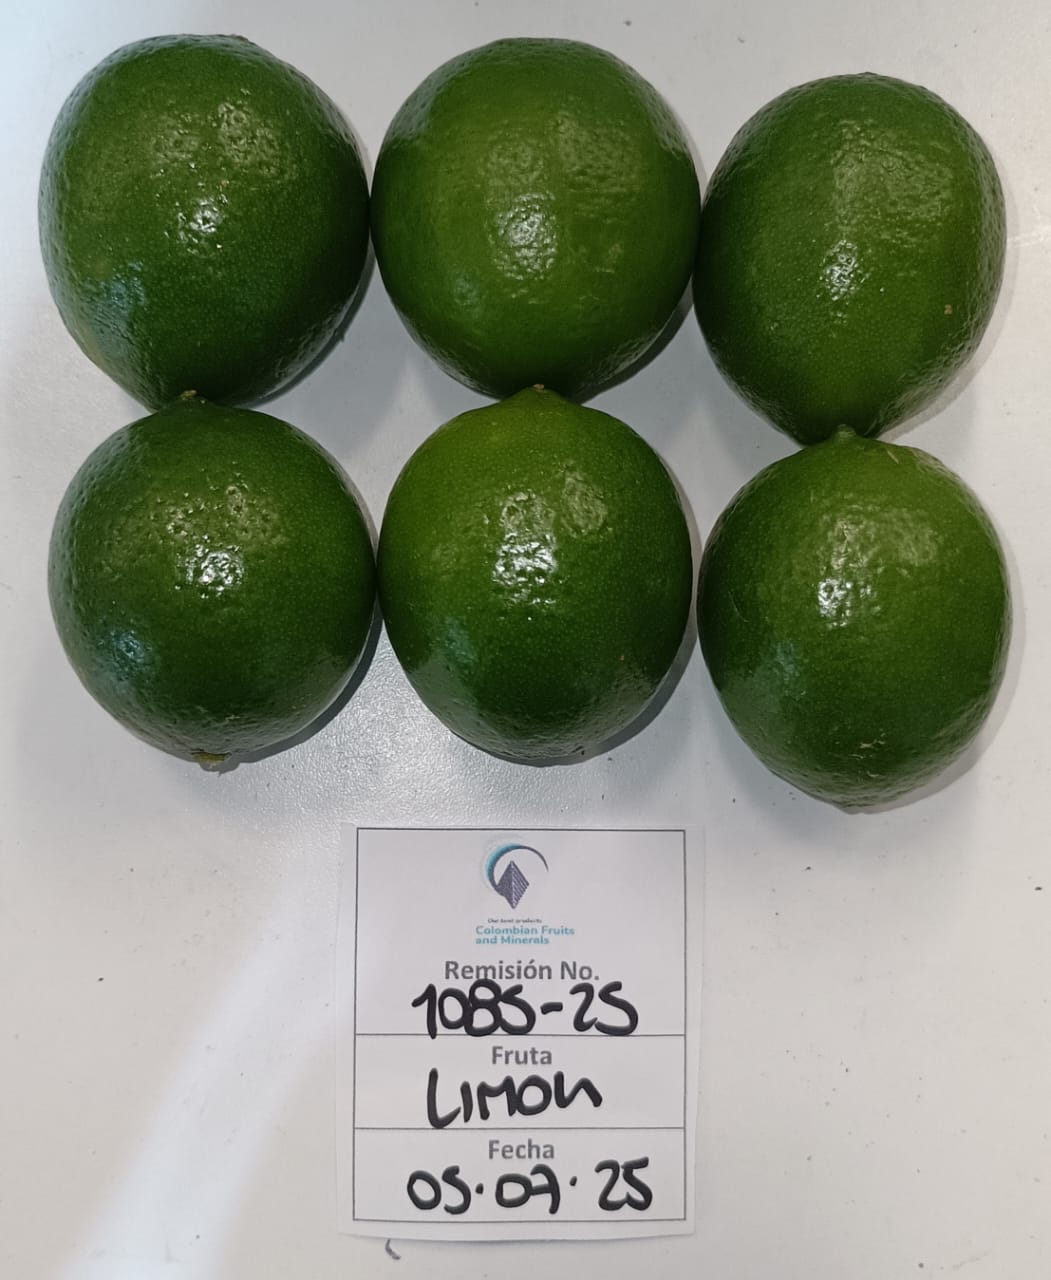 Our best products
Colombian Fruits
and Minerals
Remisión No.
1085-25
Fruta
LIMON
Fecha
05.07.25